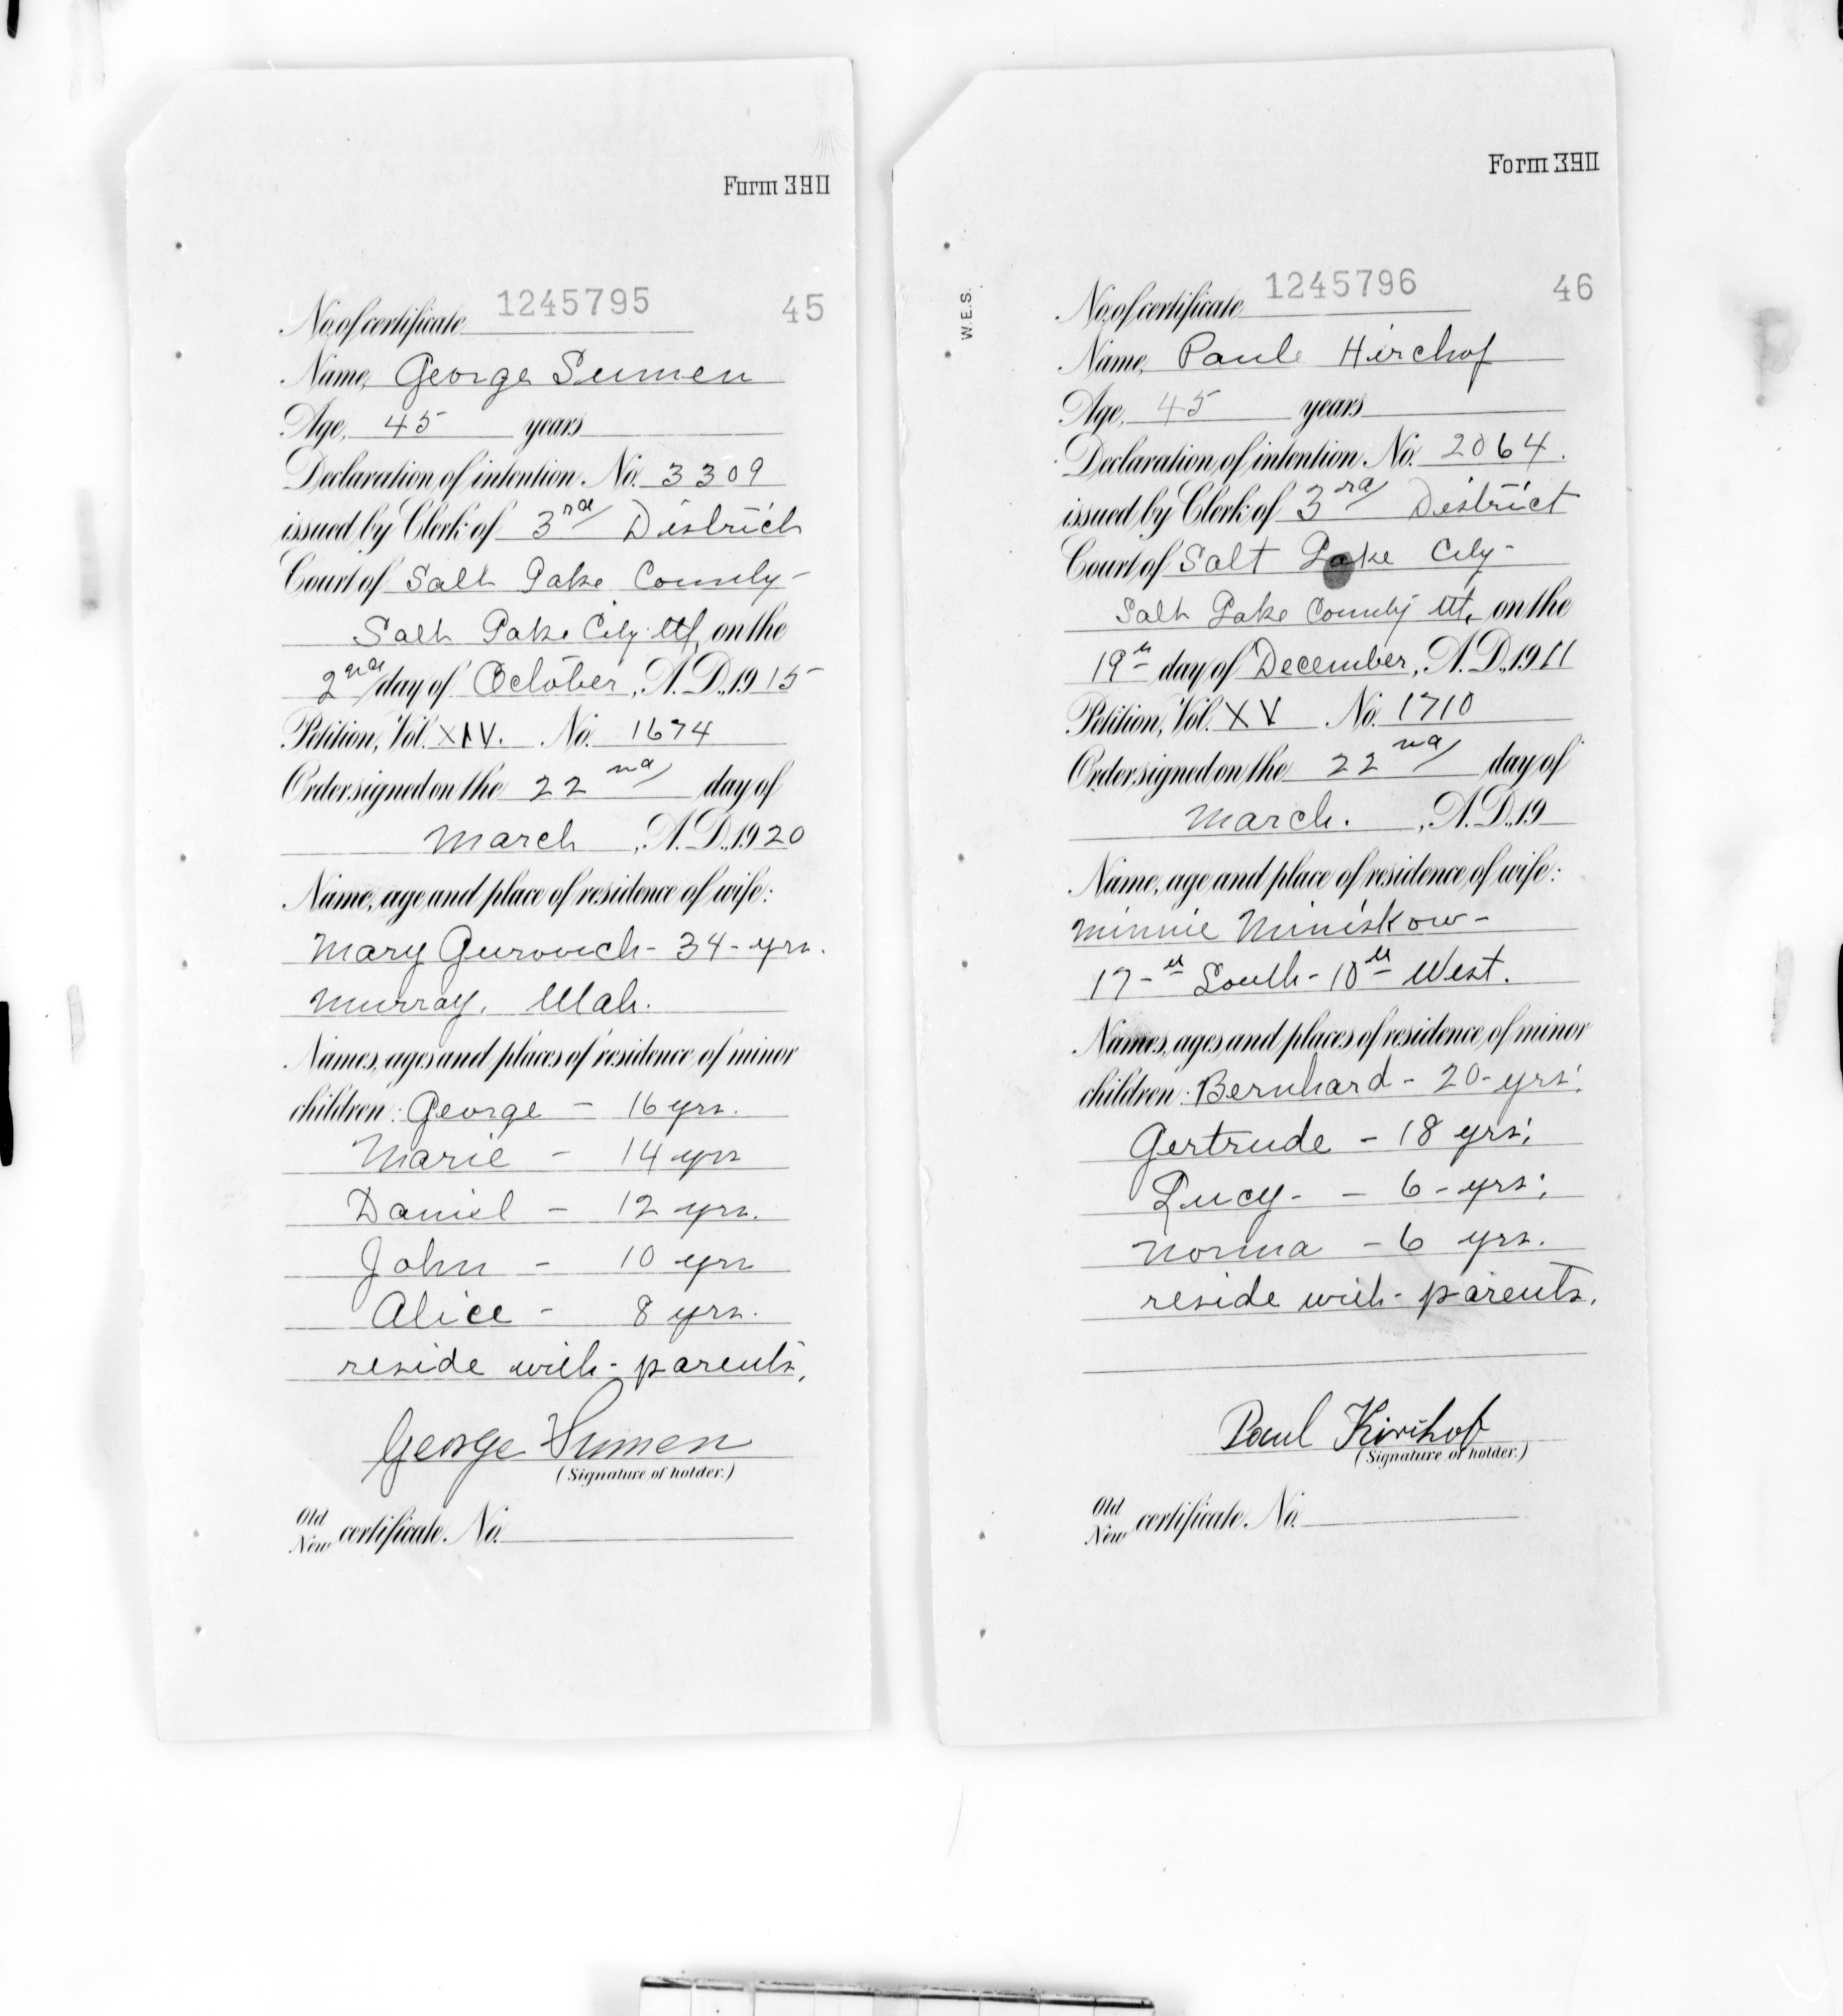 Form 390
No. of certificate 1245795 45
Name, George Sumen
Age, 45 years
Declaration of intention No. 3309
issued by Clerk of 3rd District
Court of Salt Lake County-
Salt Lake City Ut, on the
2nd day of October, A.D., 1915
Petition, Vol. XIV. No. 1674
Order signed on the 22nd day of
March, A.D., 1920
Name, age and place of residence of wife:
Mary Gurovich - 34 - yrs.
Murray, Utah.
Names, ages and places of residence of minor
children: George - 16 yrs.
Marie - 14 yrs
Daniel - 12 yrs.
John - 10 yrs
Alice - 8 yrs.
reside with - parents.
George Sumen
(Signature of holder.)
Old
New certificate. No.
Form 390
W.E.S.
No. of certificate 1245796 46
Name, Paul Hirchof
Age, 45 years
Declaration of intention No. 2064.
issued by Clerk of 3rd District
Court of Salt Lake City-
Salt Lake County Ut, on the
19th day of December, A.D., 1911
Petition, Vol. XV No. 1710
Order signed on the 22nd day of
March. , A.D., 19
Name, age and place of residence of wife:
Minnie Miniskow-
17-th South - 10th West.
Names, ages and places of residence of minor
children: Bernhard - 20- yrs;
Gertrude - 18 yrs;
Lucy - - 6 - yrs;
Norma - 6 yrs.
reside with - parents.
Paul Kirchof
(Signature of holder.)
Old
New certificate. No.